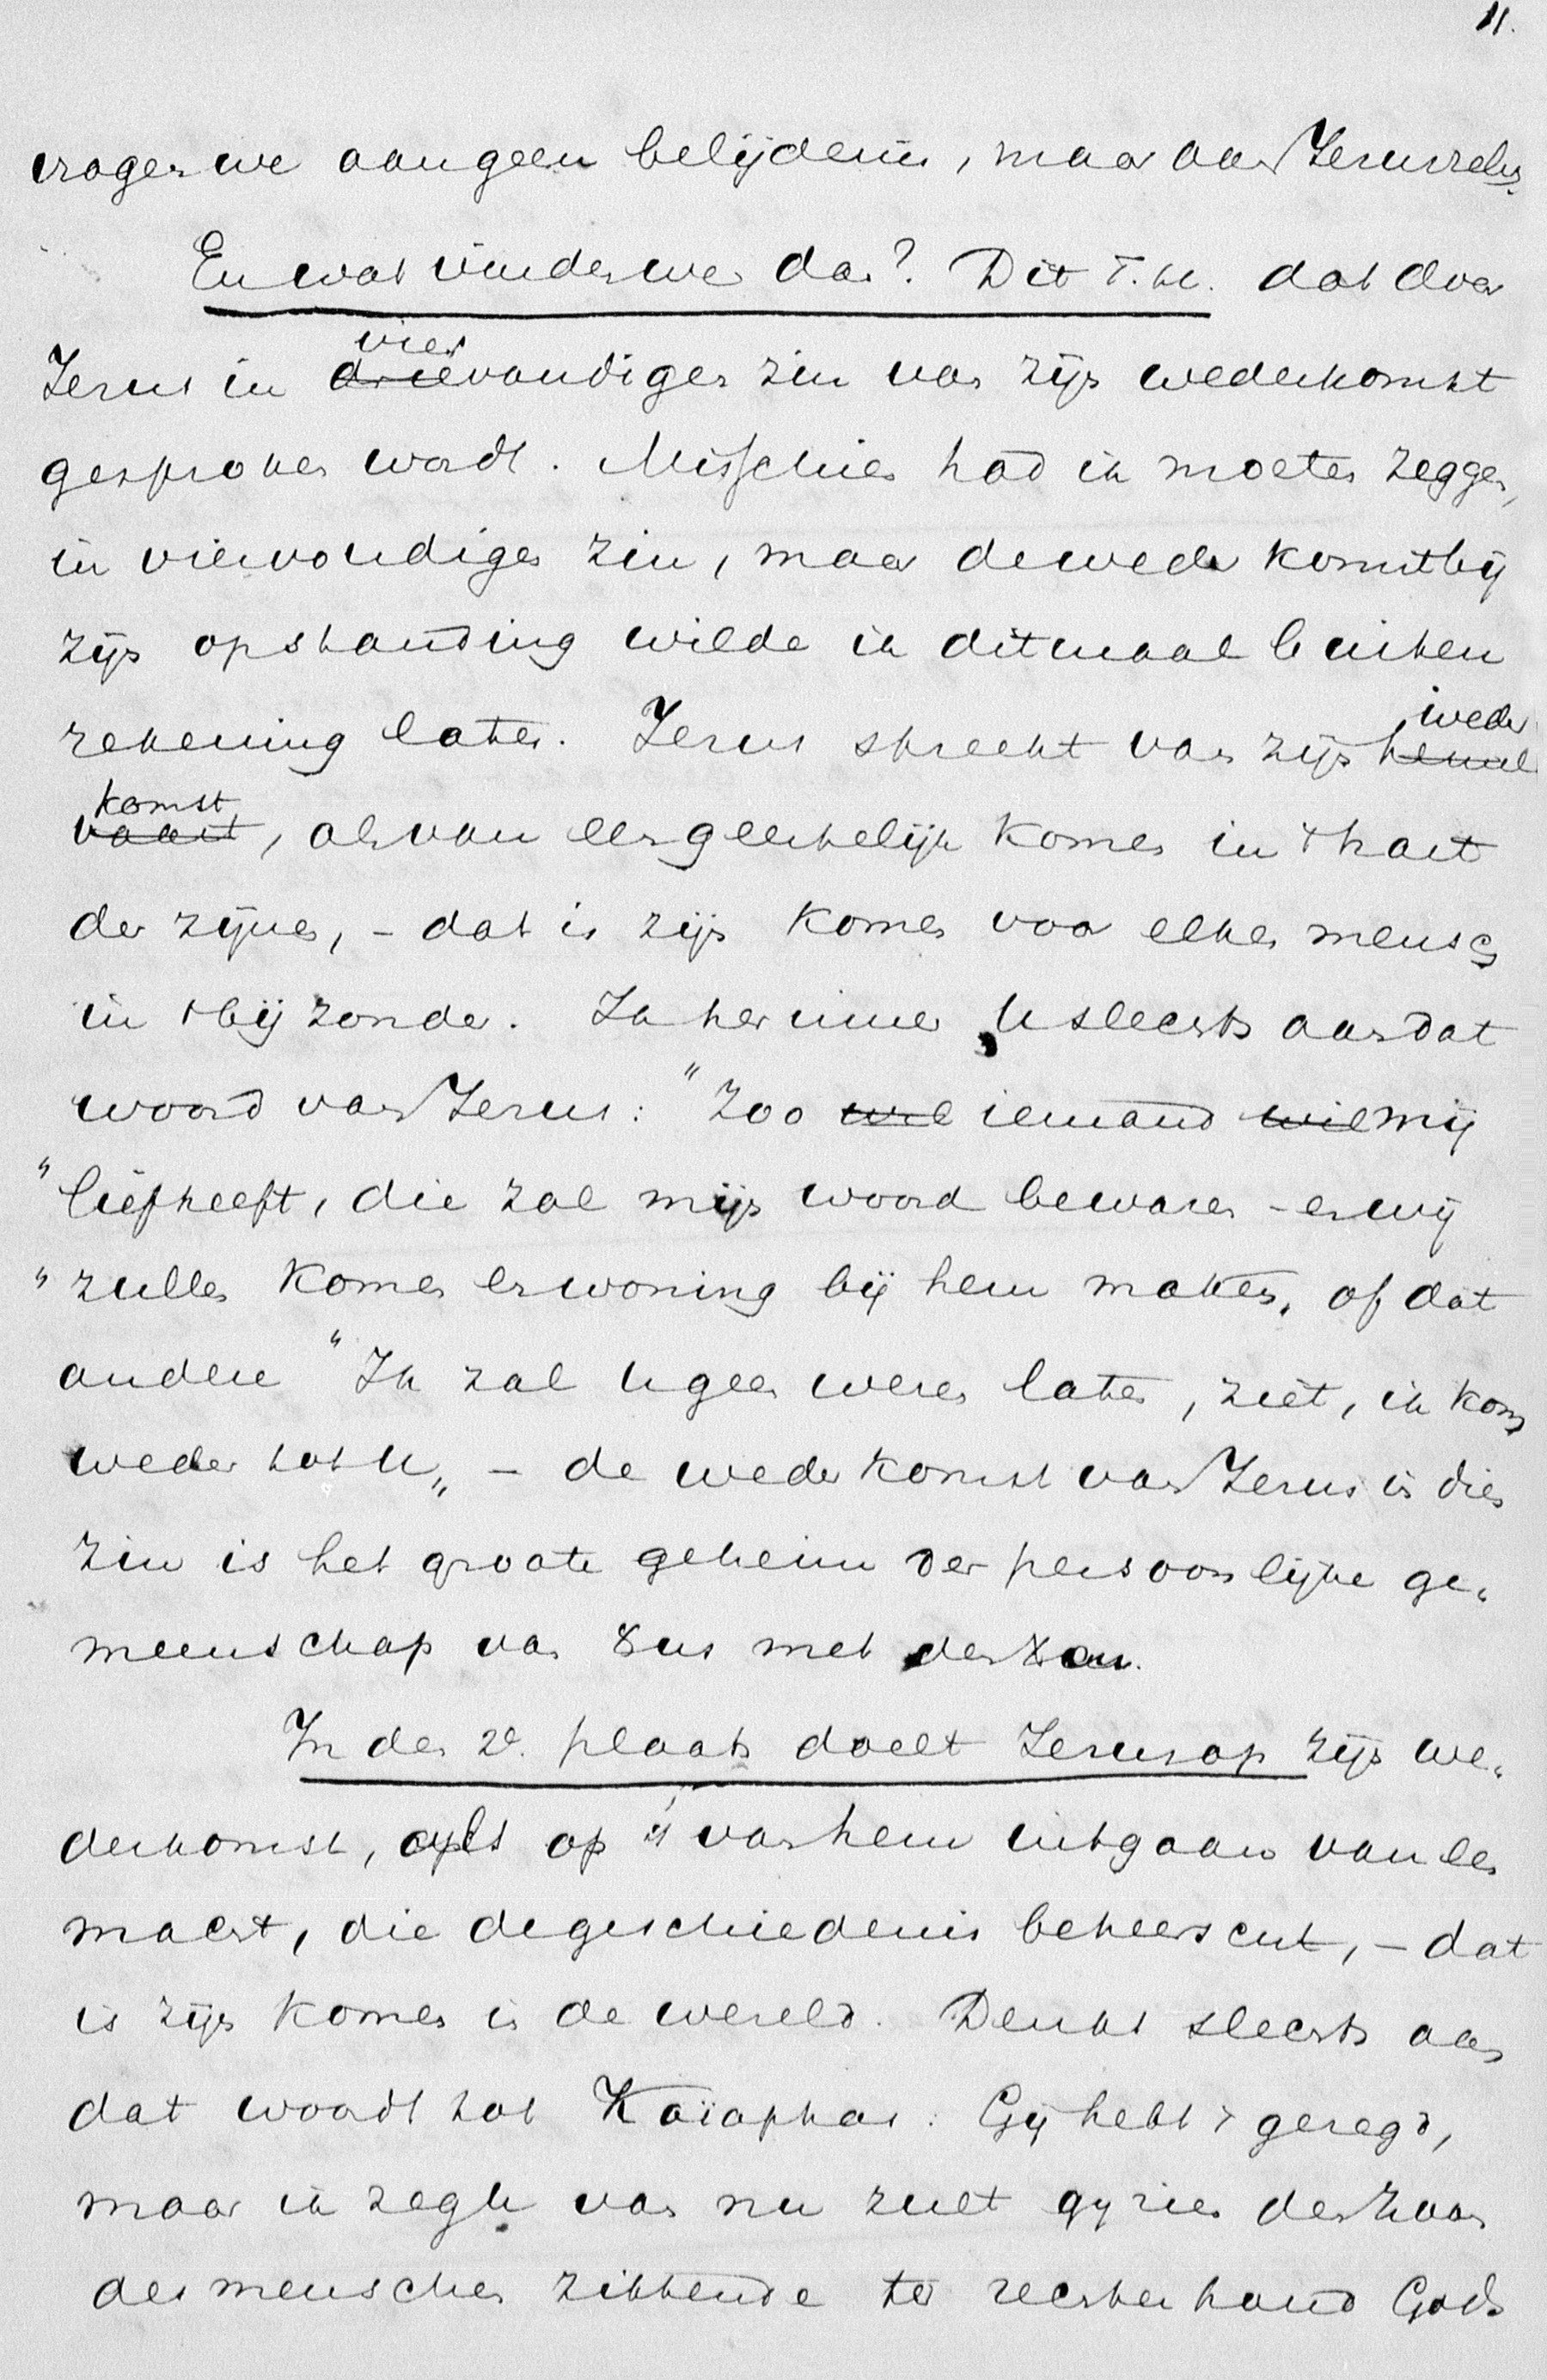 11.
vragen we aan geen belijdenis, maar aan Jezus zelv.
En wat vinden we dan? Dit T. H. dat door
vier
Jezus in drievoudigen zin van zijn wederkomst
gesproken wordt. Misschien had ik moeten zeggen,
in viervoudigen zin, maar de wederkomst bij
zijn opstanding wilde ik ditmaal buiten
rekening laten. Jezus spreekt van zijn hemel
weder
komst
vaart, als van een geestelijk komen in 't hart
der zijnen, – dat is zijn komen voor elken mensch
in 't bijzonder. Ik herinner U slechts aan dat
woord van Jezus: "Zoo wil iemand wil mij
"liefheeft, die zal mijn woord bewaren – en wij
"zullen komen en woning bij hem maken, of dat
andere "Ik zal U geen weezen laten, ziet, ik kom
weder tot U„ – de wederkomst van Jezus in dien
zin is het groote geheim der persoonlijke ge„
meenschap van met den
In de 2e. plaats doelt Jezus op zijn we„
derkomst, op 't van hem uitgaan van een
macht, die de geschiedenis beheerscht, – dat
is zijn komen in de wereld. Denkt slechts aan
dat woord tot Kaïaphas: Gij hebt 't gezegd,
maar ik zeg U van nu zult gij zien den Zoon
des menschen zittende ter rechterhand Gods